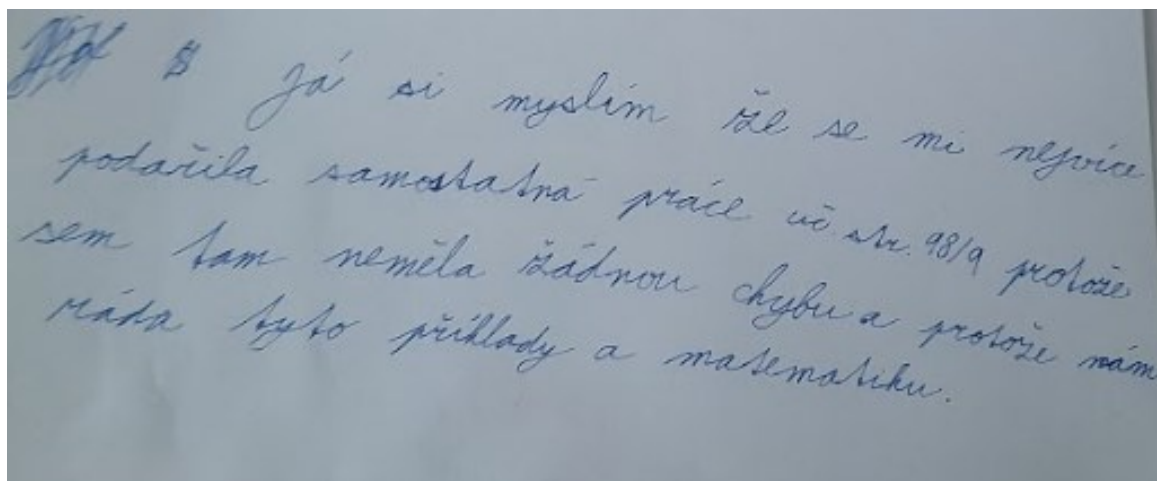 Já si myslím že se mi nejvíce
podařila samostatná práce uč. str. 98/9 protože
sem tam neměla žádnou chybu a protože mám
ráda tyto příklady a matematiku.